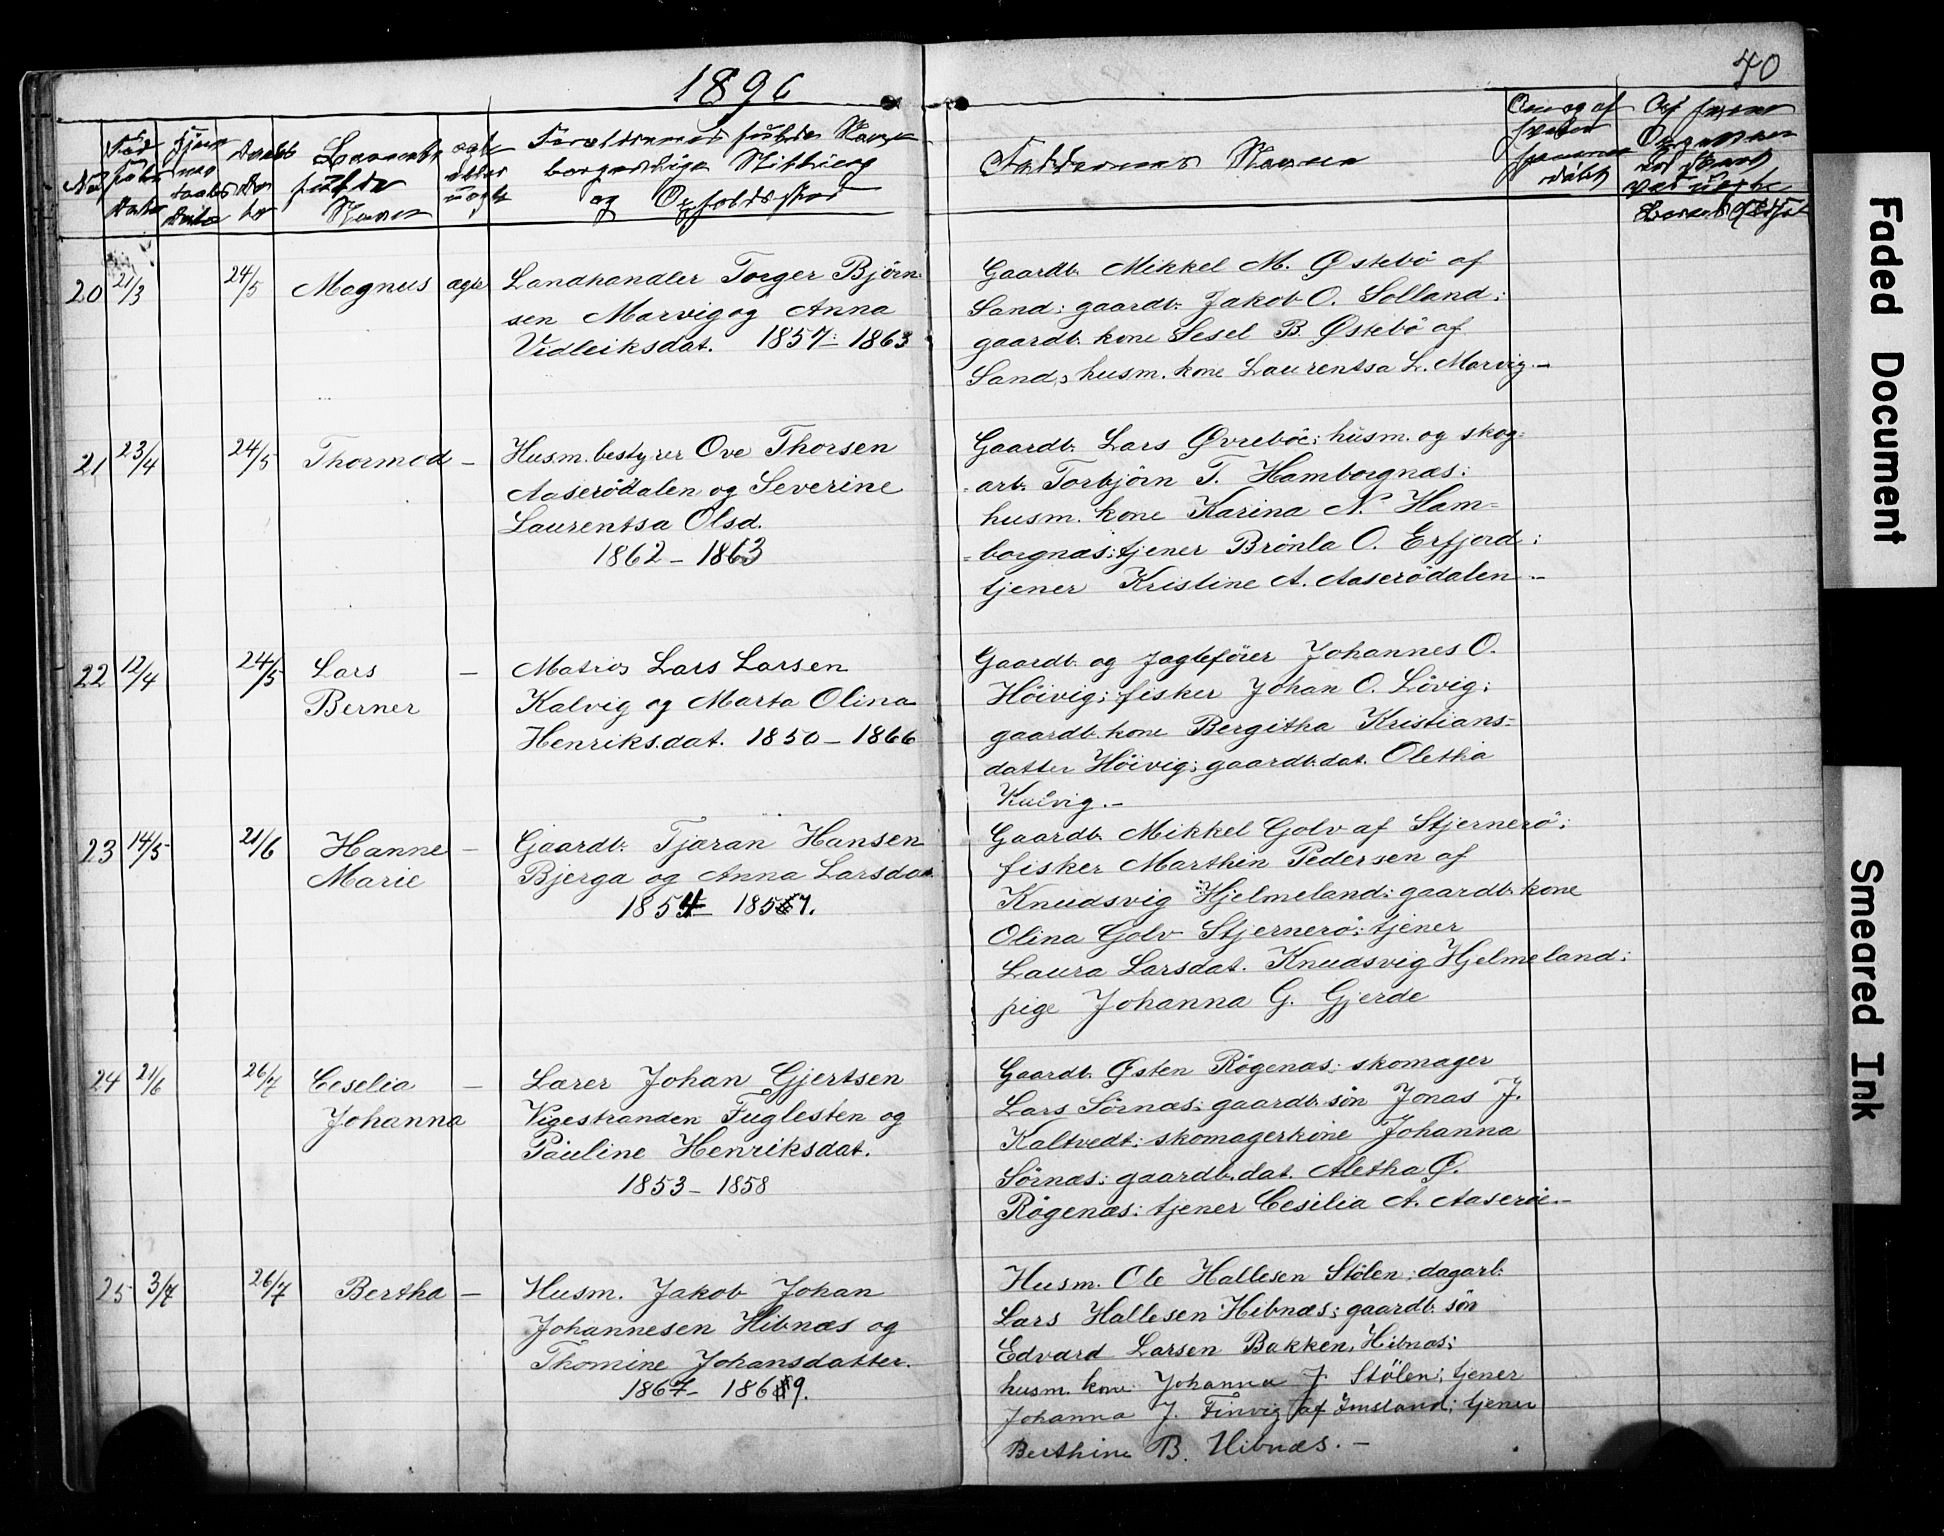 1896
40
No
Fødselsdatum
Hjemmedaabsdato
Daabsdatoer
Barnets fulde Navn
ægte eller uægte
Forældrenes fulde Navne borgerlige Stilling og Opholdssted
Faddernes Navne
20 21/3 24/5 Magnus ægte
Landhandler Torger Bjørn-
sen Marvig og Anna
Vidleiksdat. 1857 - 1863
Gaardb. Mikkel M. Østebö af
Sand; gaardb. Jakob O. Solland;
gaardb. kone Sesel B. Østebö af
Sand; husm. kone Laurentsa L. Marvig.-
21 23/4 24/5 Thormod -
Husm. bestyrer Ove Thorsen
Aaserödalen og Severine
Laurentsa Olsd.
1862 - 1863
Gaardb. Lars Øvreböe; husm. og skog-
arb. Torbjörn T. Hamborgnæs;
husm. kone Karina N. Ham-
-borgnæs; tjener Brönla O. Erfjord;
tjener Kristine A. Aaserödalen.-
22 12/4 24/5 Lars -
Berner
Matros Lars Larsen
Kalvig og Marta Olina
Henriksdat. 1850 - 1866
Gaardb. og jagtefører Johannes O.
Höivig; fisker Johan O. Lövig;
gaardb. kone Bergitha Kristians-
datter Höivig; gaardb. dat. Oletha
23 14/5 21/6 Hanne -
Marie
Gaardb. Tjæran Hansen
Bjerga og Anna Larsdat.
1854 - 1857.
Gaardb. Mikkel Golv af Stjernerö;
fisker Marthin Pedersen af
Knudsvig Hjelmeland; gaardb. kone
Olina Golv Stjernerö; tjener
Laura Larsdat. Knudsvig Hjelmeland;
pige Johanna G. Gjerde
24 21/6 26/7 Ceselia -
Johanna
Lærer Johan Gjertsen
Vigestranden Fuglesten og
Pauline Henriksdat.
1853 - 1858
Gaardb. Østen Rögenæs; skomager
Lars Sörnæs; gaardb. sön Jonas J.
Kaltvedt; skomagerkone Johanna
Sörnæs; gaardb. dat. Aletha Ø.
Rögenæs; tjener Cesilia A. Aaseröe.-
25 3/7 26/7 Bertha -
Husm. Jakob Johan
Johannesen Hibnæs og
Thomine Johansdatter.
1867 - 1869.
Husm. Ole Hallesen Stölen; dagarb.
Lars Hallesen Hibnæs; gaardb. sön
Edvard Larsen Bakken, Hibnæs;
husm. kone Johanna J. Stölen; tjener
Johanna J. Finvig af Imsland; tjener
Berthine B. Hibnæs.-
Faded Document
Smeared Ink